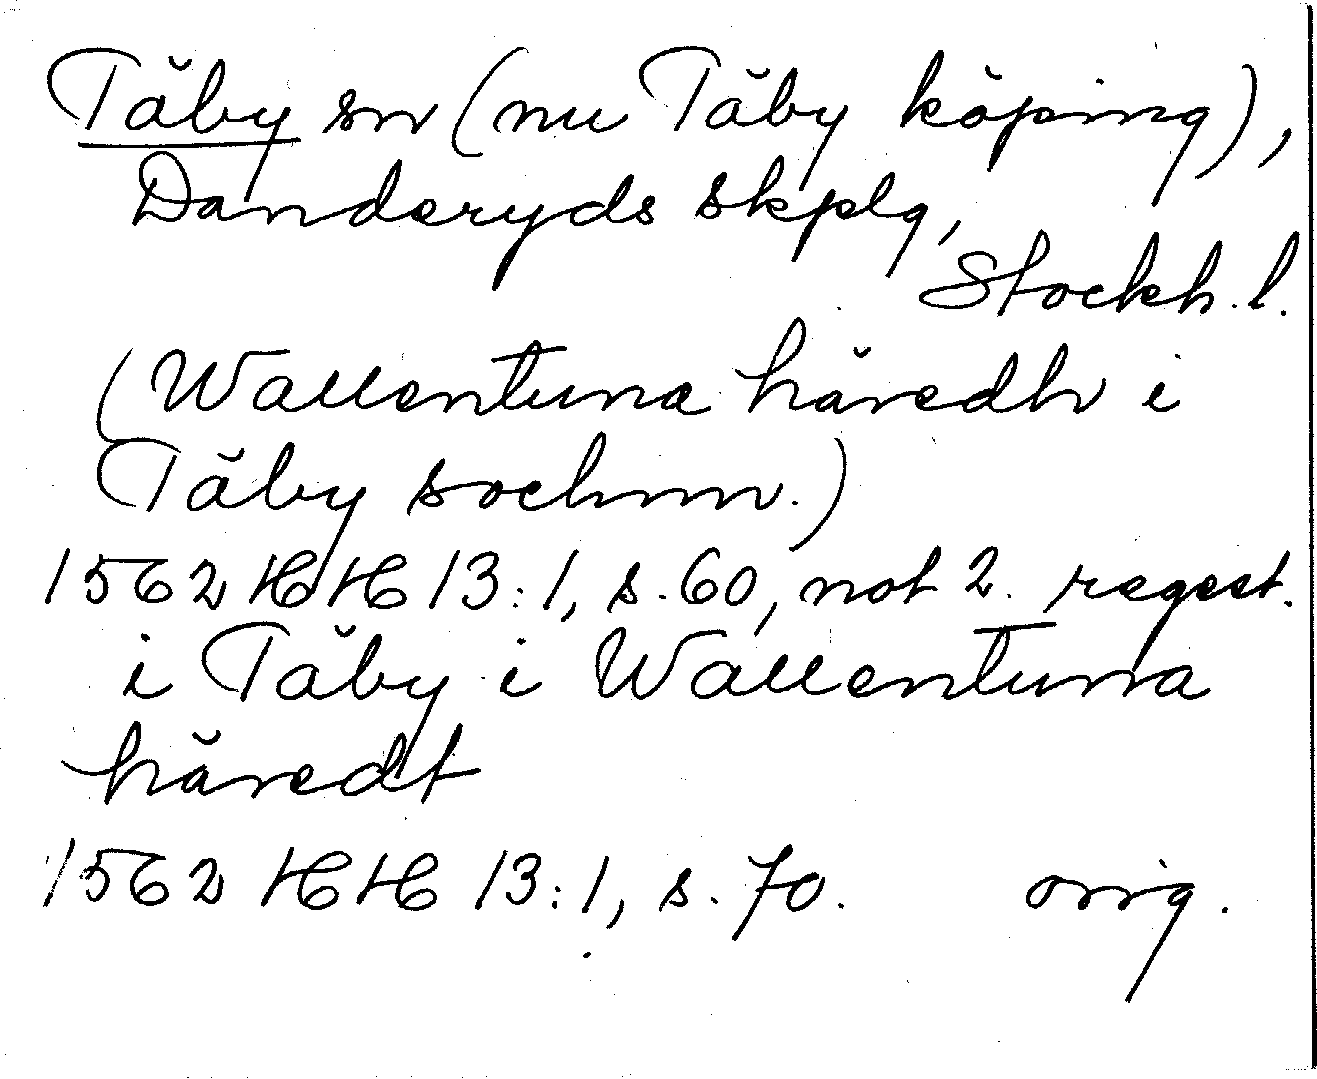 Täby sn (nu Täby köping),
Danderyds skplg,
Stockh. l.
(Wallentuna häredh i
Täby sochnn.)
1562 HH 13:1, s. 60, not 2. regest.
i Täby i Wallentuna
häredt
1562 HH 13:1, s. 70. orig.